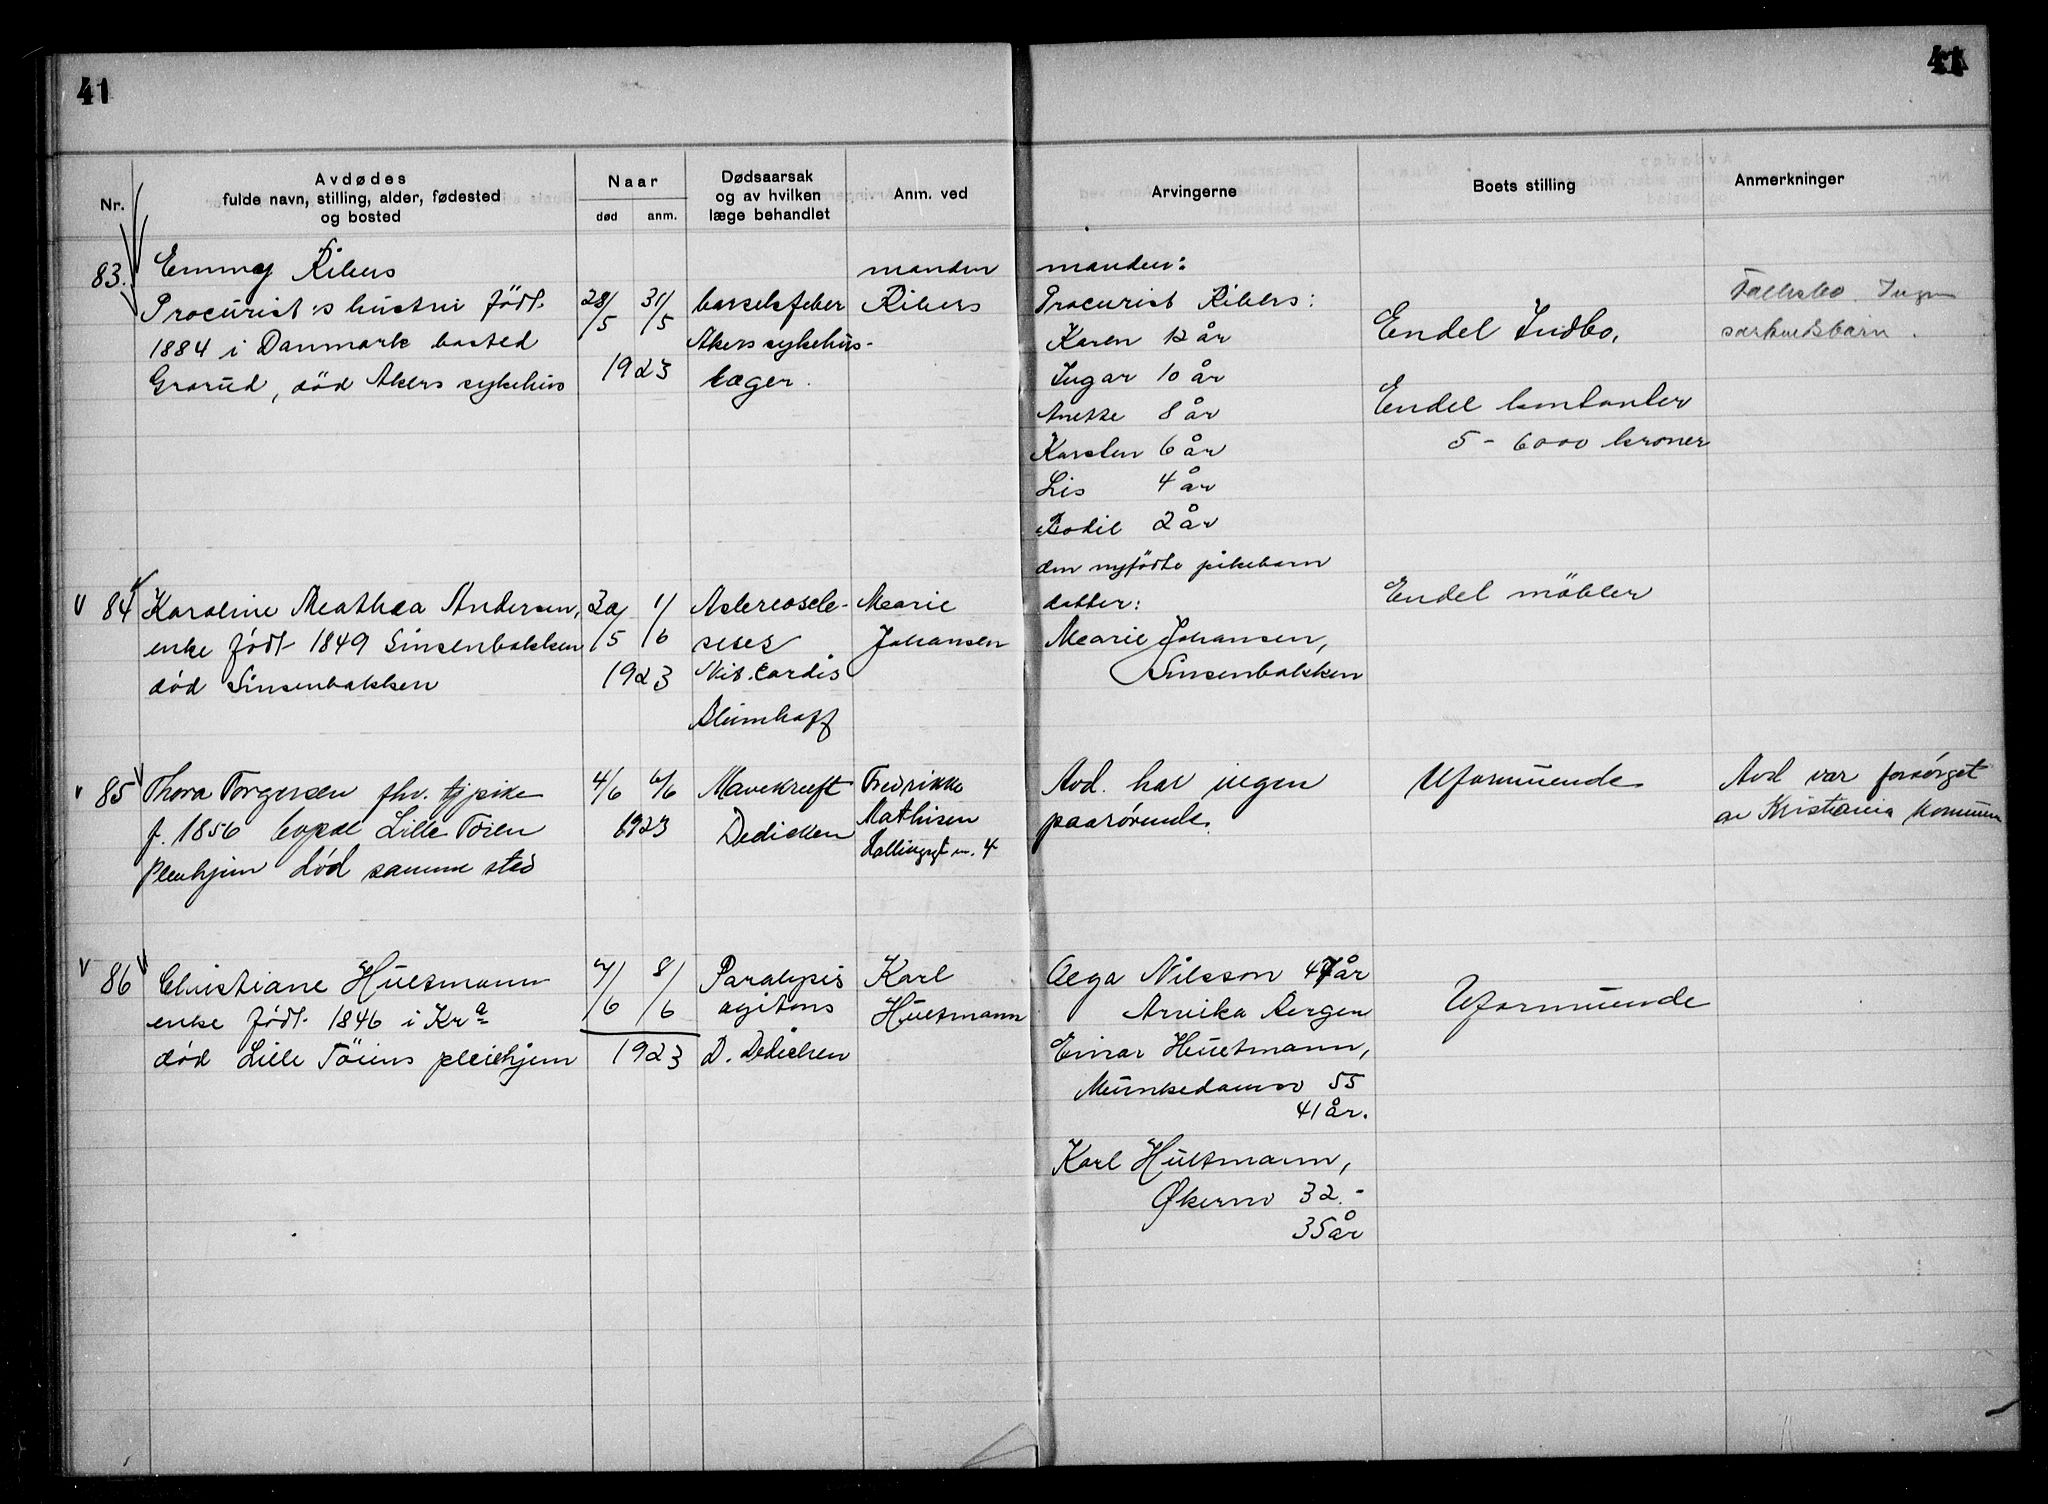 41
41
Nr.
Avdødes
fulde navn, stilling, alder, fødested
og bosted
Naar
død
anm.
Dødsaarsak
og av hvilken
læge behandlet
Anm. ved
Arvingerne
Boets stilling
Anmerkninger
83.
Emmy Ribers
Procurist :s hustru födt.
1884 i Danmark bosted
Grorud, död Akers sykehus
28/5 31/5
1923
barselsfeber
Akers sykehus-
læger.
manden
Ribers
manden:
Procurist Ribers:
Karen 12 år
Ingar 10 år
Anette 8 år
Karsten 6 år
Lis 4 år
Bodil 2 år
den nyfödte pikebarn
Endel Indbo.
Endel kontanter
5 - 6000 kroner
Fællesbo. Ingen
særkuldsbarn.
v 84
Karoline Mathea Andersen,
enke födt 1849 Sinsenbakken
död Sinsenbakken
30/5 1/6
1923
Vit. Cordis
Marie
Johansen
datter:
Marie Johansen,
Sinsenbakken
Endel möbler
v 85
Thora Torgersen fhv. tjpike
f. 1856 Lille Töien
Pleiehjem död samme sted
4/6 6/6
1923
Mavekræft
Dedichen
Fredrikke
Mathisen
Avd. har ingen
paarørende.
Uformuende
Avd var forsørget
av Kristiania kommune
v 86
Christiane Hultmann
enke födt. 1846 i Kra
död Lille Töiens pleiehjem
7/6 8/6
1923
Paralysis
agitans
D. Dedichen
Karl
Hultmann
Olga Nilsson 47 år
Arvika
Einar Hultmann,
Munkedamsv 55
41 år.
Karl Hultmann,
Økernv 32.-
35 år
Uformuende